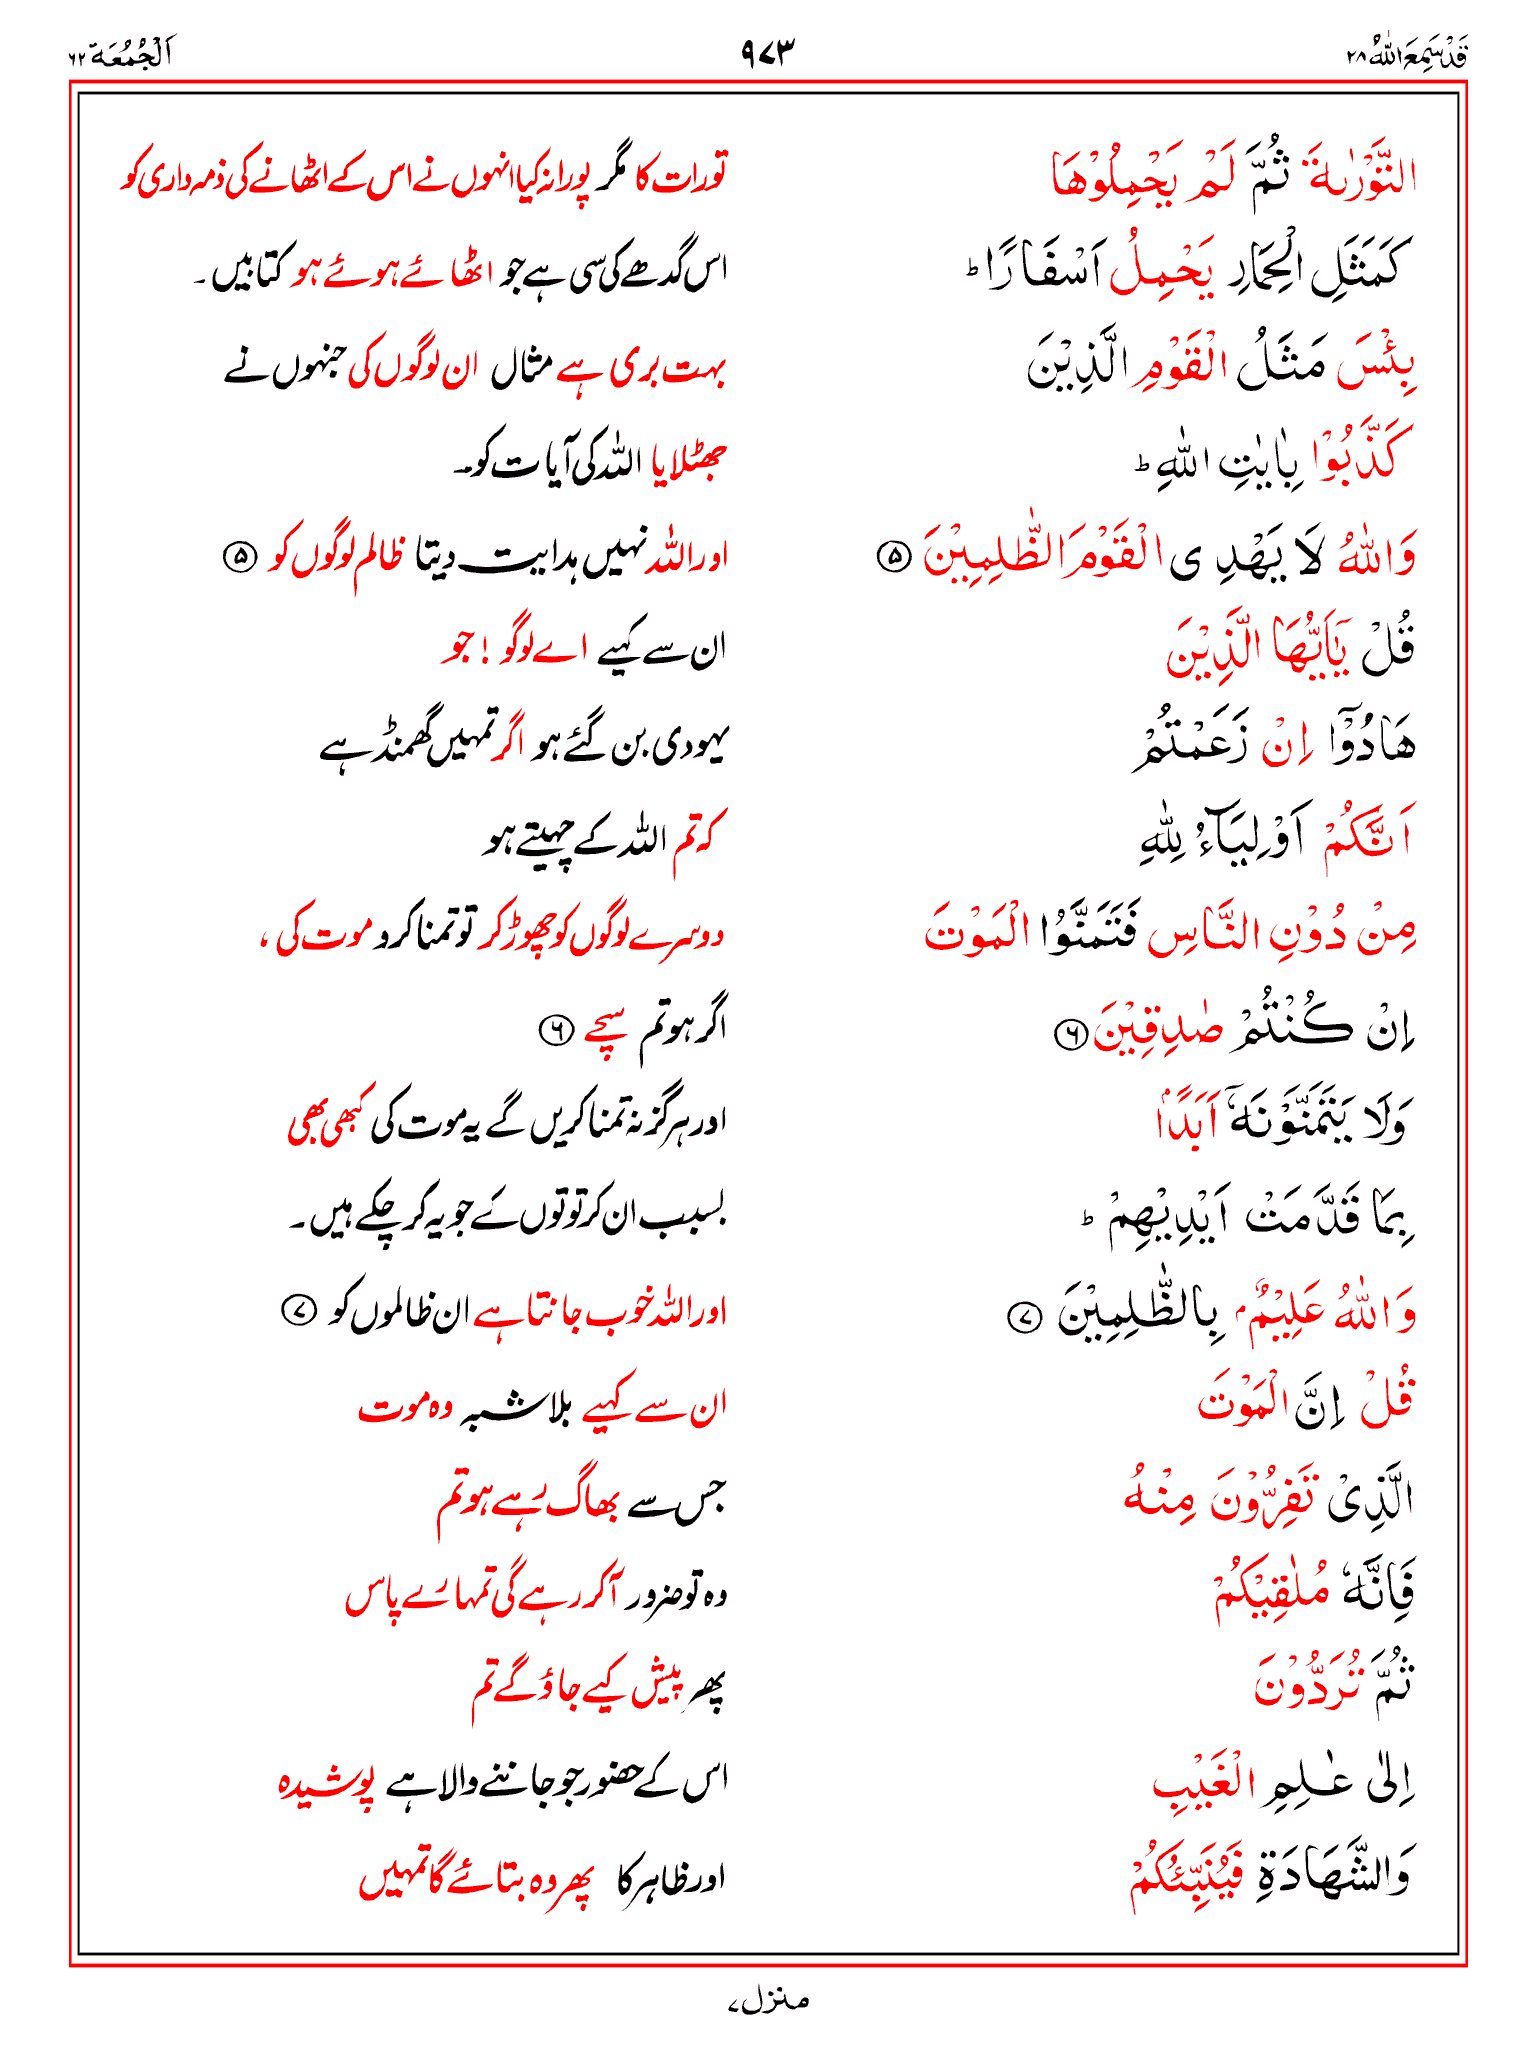 قَدْسَمِعَ اللّٰهُ ۲۸ ۹۷۳ اَلْجُمُعَة ۶۲
التَّوْرٰىةَ ثُمَّ لَمْ يَحْمِلُوْهَا تورات کا مگر پورا نہ کیا انہوں نے اس کے اٹھانے کی ذمہ داری کو
كَمَثَلِ الْحِمَارِ يَحْمِلُ اَسْفَارًا ؕ اس گدھے کی سی ہے جو اٹھائے ہوئے ہو کتابیں۔
بِئْسَ مَثَلُ الْقَوْمِ الَّذِيْنَ بہت بری ہے مثال ان لوگوں کی جنہوں نے
كَذَّبُوْا بِاٰيٰتِ اللّٰهِ ؕ جھٹلایا اللہ کی آیات کو۔
وَاللّٰهُ لَا يَهْدِى الْقَوْمَ الظّٰلِمِيْنَ ۝۵ اور اللہ نہیں ہدایت دیتا ظالم لوگوں کو ۝۵
قُلْ يٰۤاَيُّهَا الَّذِيْنَ ان سے کہیے اے لوگو ! جو
هَادُوْۤا اِنْ زَعَمْتُمْ یہودی بن گئے ہو اگر تمہیں گھمنڈ ہے
اَنَّكُمْ اَوْلِيَآءُ لِلّٰهِ کہ تم اللہ کے چہیتے ہو
مِنْ دُوْنِ النَّاسِ فَتَمَنَّوُا الْمَوْتَ دوسرے لوگوں کو چھوڑ کر تو تمنا کرو موت کی ،
اِنْ كُنْتُمْ صٰدِقِيْنَ ۝۶ اگر ہو تم سچے ۝۶
وَلَا يَتَمَنَّوْنَهٗۤ اَبَدًۢا اور ہرگز نہ تمنا کریں گے یہ موت کی کبھی بھی
بِمَا قَدَّمَتْ اَيْدِيْهِمْ ؕ بسبب ان کرتوتوں کے جو یہ کر چکے ہیں۔
وَاللّٰهُ عَلِيْمٌۢ بِالظّٰلِمِيْنَ ۝۷ اور اللہ خوب جانتا ہے ان ظالموں کو ۝۷
قُلْ اِنَّ الْمَوْتَ ان سے کہیے بلاشبہ وہ موت
الَّذِىْ تَفِرُّوْنَ مِنْهُ جس سے بھاگ رہے ہو تم
فَاِنَّهٗ مُلٰقِيْكُمْ وہ تو ضرور آ کر رہے گی تمہارے پاس
ثُمَّ تُرَدُّوْنَ پھر پیش کیے جاؤ گے تم
اِلٰى عٰلِمِ الْغَيْبِ اس کے حضور جو جاننے والا ہے پوشیدہ
وَالشَّهَادَةِ فَيُنَبِّئُكُمْ اور ظاہر کا پھر وہ بتائے گا تمہیں
منزل ۷